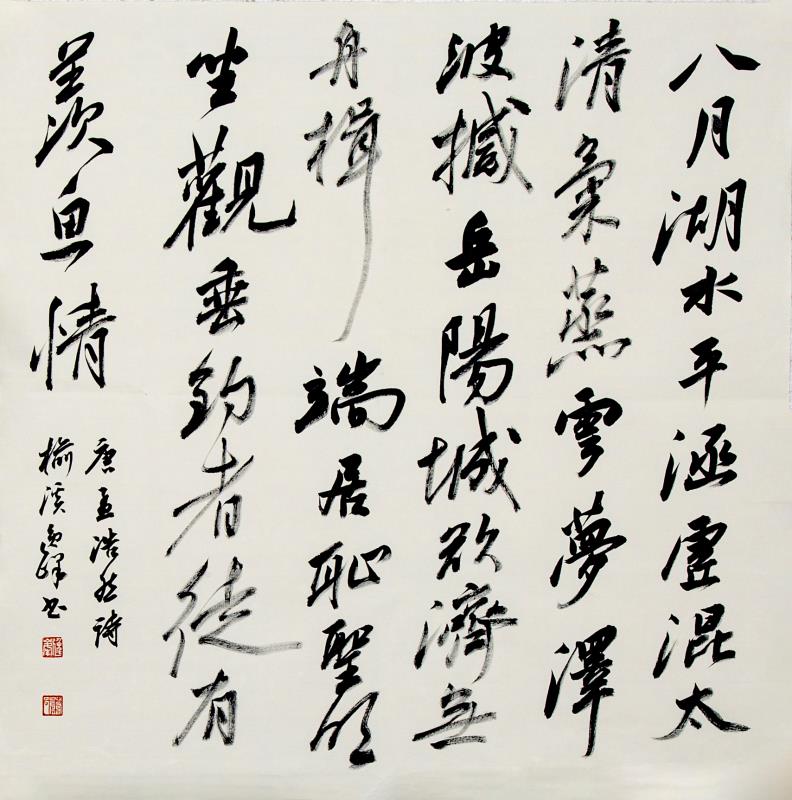 八月湖水平涵虛混太
清氣蒸雲夢澤
波撼岳陽城欲濟無
舟楫端居恥聖明
坐觀垂釣者徒有
羨魚情
唐孟浩然詩
榆溪峰书